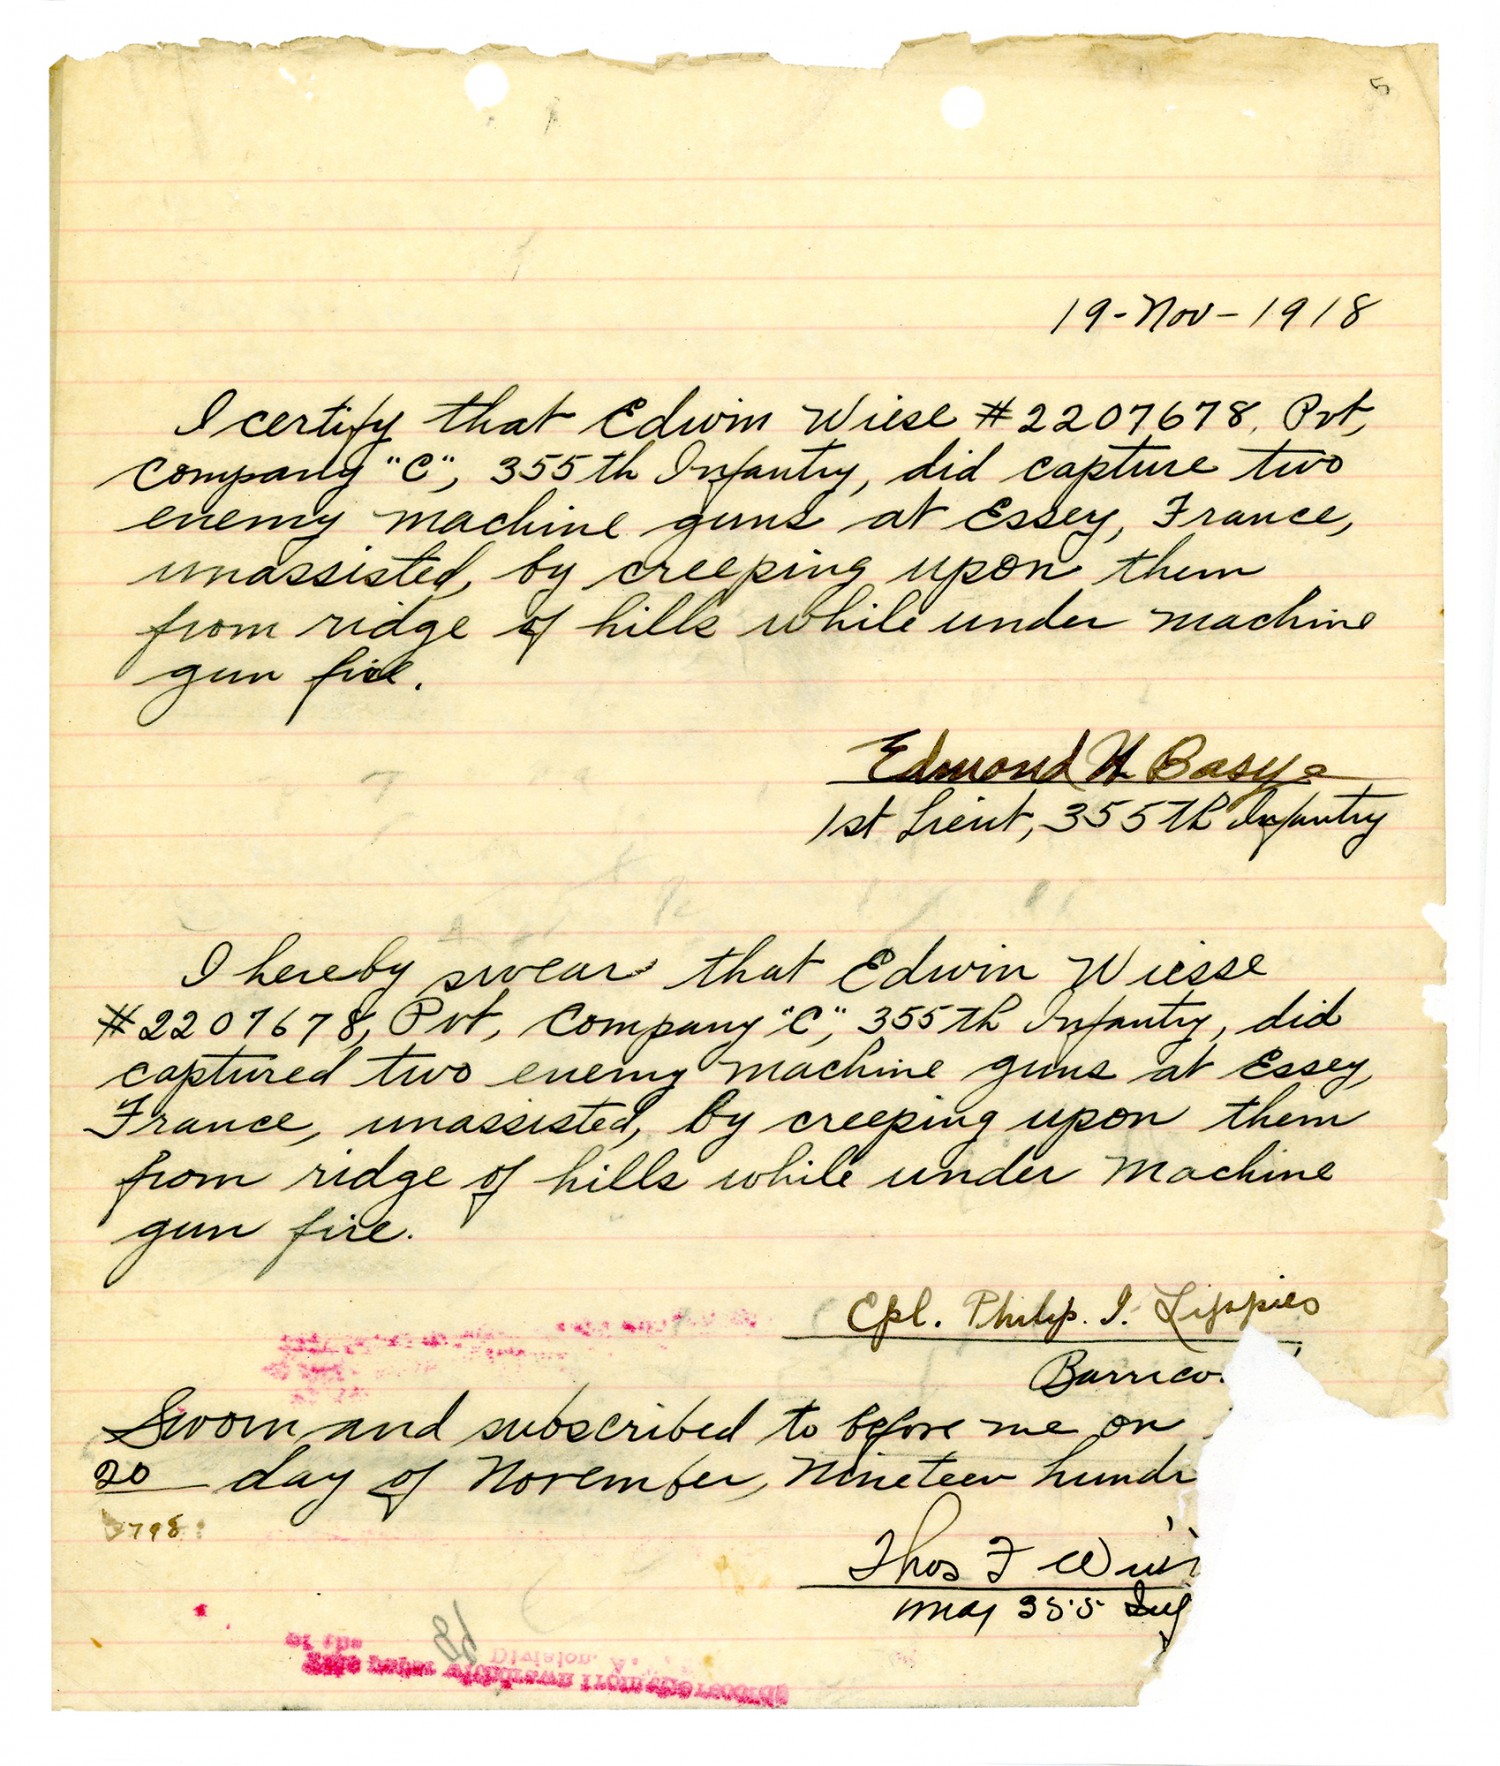 5
19-Nov-1918
I certify that Edwin Wiese #2207678, Pvt,
Company "C", 355th Infantry, did capture two
enemy machine guns at Essey, France,
unassisted, by creeping upon them
from ridge of hills while under machine
gun fire.
Edmond H Basye
1st Lieut, 355th Infantry
I hereby swear that Edwin Wiesse
#2207678, Pvt, Company "C", 355th Infantry, did
captured two enemy machine guns at Essey,
France, unassisted, by creeping upon them
from ridge of hills while under machine
gun fire.
Cpl. Philip. I. Lippies
Sworn and subscribed to before me on
20 day of November, Nineteen hundr
Thos F
Maj 355 Inf
Division, A.
of the
This paper withdrawn from the records